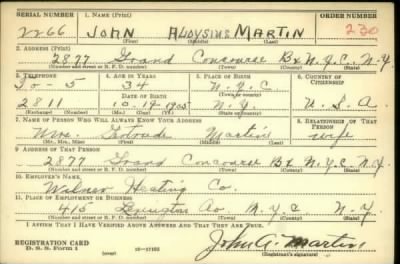 SERIAL NUMBER 1. NAME (Print) ORDER NUMBER
2266 JOHN ALOYSIUS MARTIN 230
(First) (Middle) (Last)
2. ADDRESS (Print)
2877 Grand Concourse Bx N.Y.C. N.Y.
(Number and street or R. F. D. number) (Town) (County) (State)
3. TELEPHONE 4. AGE IN YEARS 5. PLACE OF BIRTH 6. COUNTRY OF CITIZENSHIP
34 N.Y.C.
DATE OF BIRTH (Town or county)
2811 10-19-1905 N.Y. U.S.A.
7. NAME OF PERSON WHO WILL ALWAYS KNOW YOUR ADDRESS 8. RELATIONSHIP OF THAT PERSON
Mrs. Gertrude Martin wife
(Mr., Mrs., Miss) (First) (Middle) (Last)
9. ADDRESS OF THAT PERSON
2877 Grand Concourse Bx N.Y.C. N.Y.
(Number and street or R. F. D. number) (Town) (County) (State)
10. EMPLOYER'S NAME
Heating Co.
11. PLACE OF EMPLOYMENT OR BUSINESS
415 Lexington Av N.Y.C N.Y.
(Number and street or R. F. D. number) (Town) (County) (State)
I AFFIRM THAT I HAVE VERIFIED ABOVE ANSWERS AND THAT THEY ARE TRUE.
REGISTRATION CARD
D. S. S. Form 1 (over) John A. Martin
(Registrant's signature)